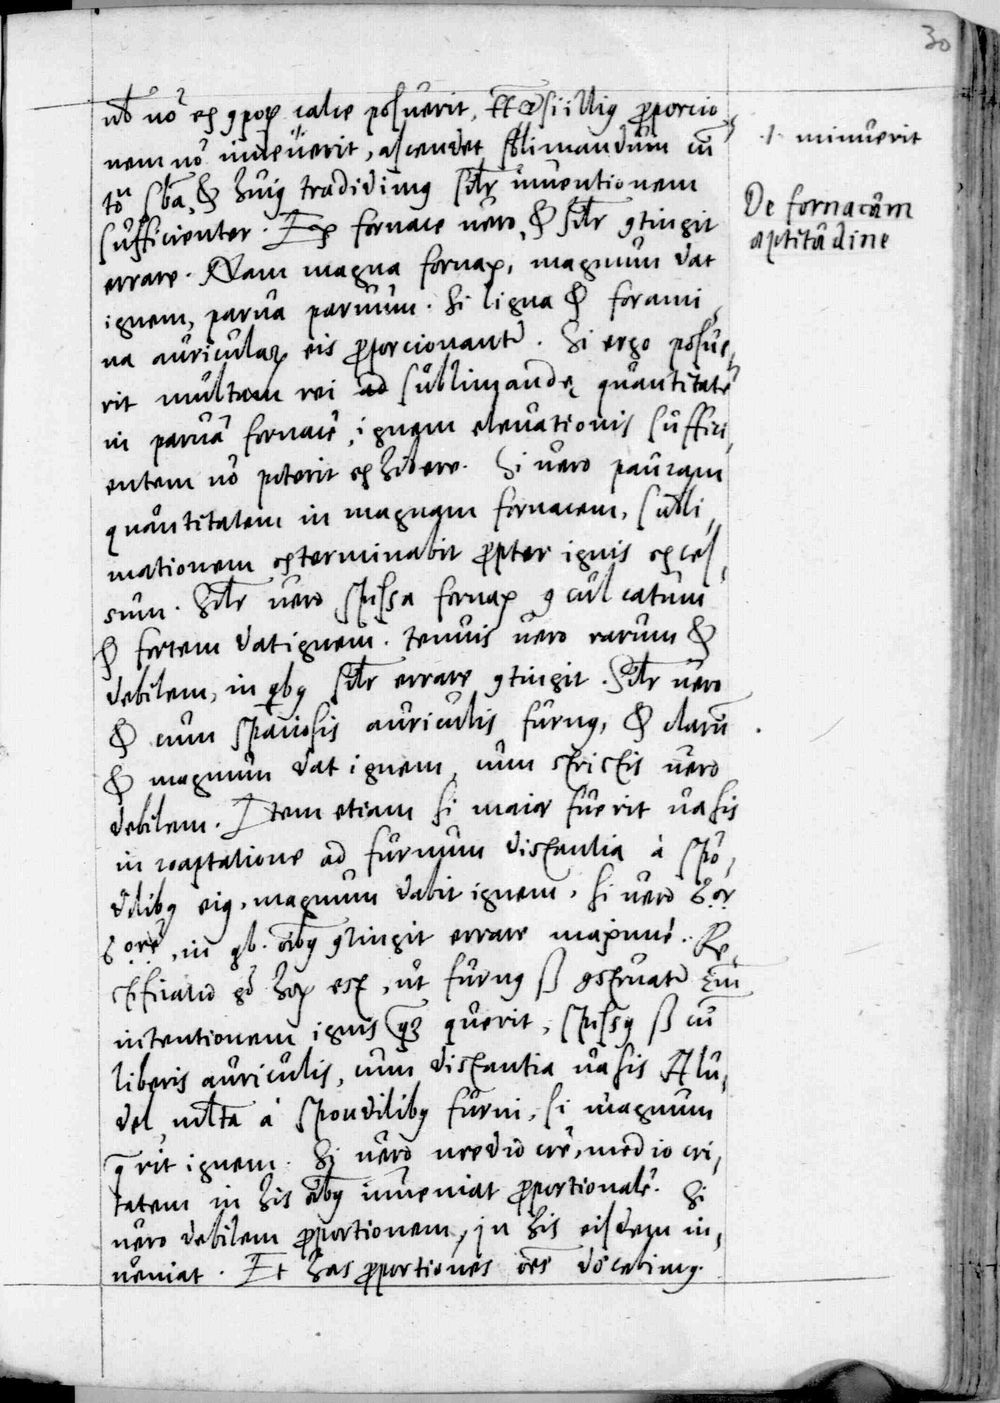 30
nō ex ꝯpoꝝ calce posuerit, si illiꝰ ꝓporcio
nem nō inveñerit, ascendet sublimandum cū
tō sb̄a, & huiꝰ tradidimꝰ silr̄ inventionem
sufficienter. Ex fornace vero, & silr̄ ꝯtingit
errare. Nam magna fornax, magnum dat
ignem, parva parvum. si ligna & forami
na auriculaꝝ eis ꝓporcionant᷑. Si ergo posue,
rit multam rei ad sublimandę quantitatē
in parvā fornacē, ignem elevationis suffici,
entem nō poterit exhibere. Si vero paucam
quantitatem in magnam fornacem, subli,
mationem exterminabit ꝓpter ignis exces,
sum. Silr̄ vero spissa fornax ꝯculcatum
& fortem dat ignem. tenuis vero rarum &
debilem, in qbꝰ silr̄ errare ꝯtingit. Silr̄ vero
& cum spaciosis auriculis furnꝰ, & clarū
& magnum dat ignem, cum strictis vero
debilem. Item etiam si maior fuerit vasis
in coaptatione ad furnum distantia à spō,
dilibꝰ eiꝰ, magnum dabit ignem, si vero
in qb. oībꝰ ꝯtingit errare maxime. Re,
ctificatio hoꝝ est, ut furnꝰ ꝯstruat᷑
intentionem ignis querit, spissꝰ cū
liberis auriculis, cum distantia vasis Alu,
del, mlta à spondilibꝰ furni, si magnum
q̄rit ignem. Si vero mediocrē, mediocri,
tatem in his oībꝰ inveniat ꝓportionalē. Si
vero debilem ꝓportionem, in his eisdem in,
veniat. Et has ꝓportiones oēs docebimꝰ.
·|· minuerit
De fornacum
aptitudine